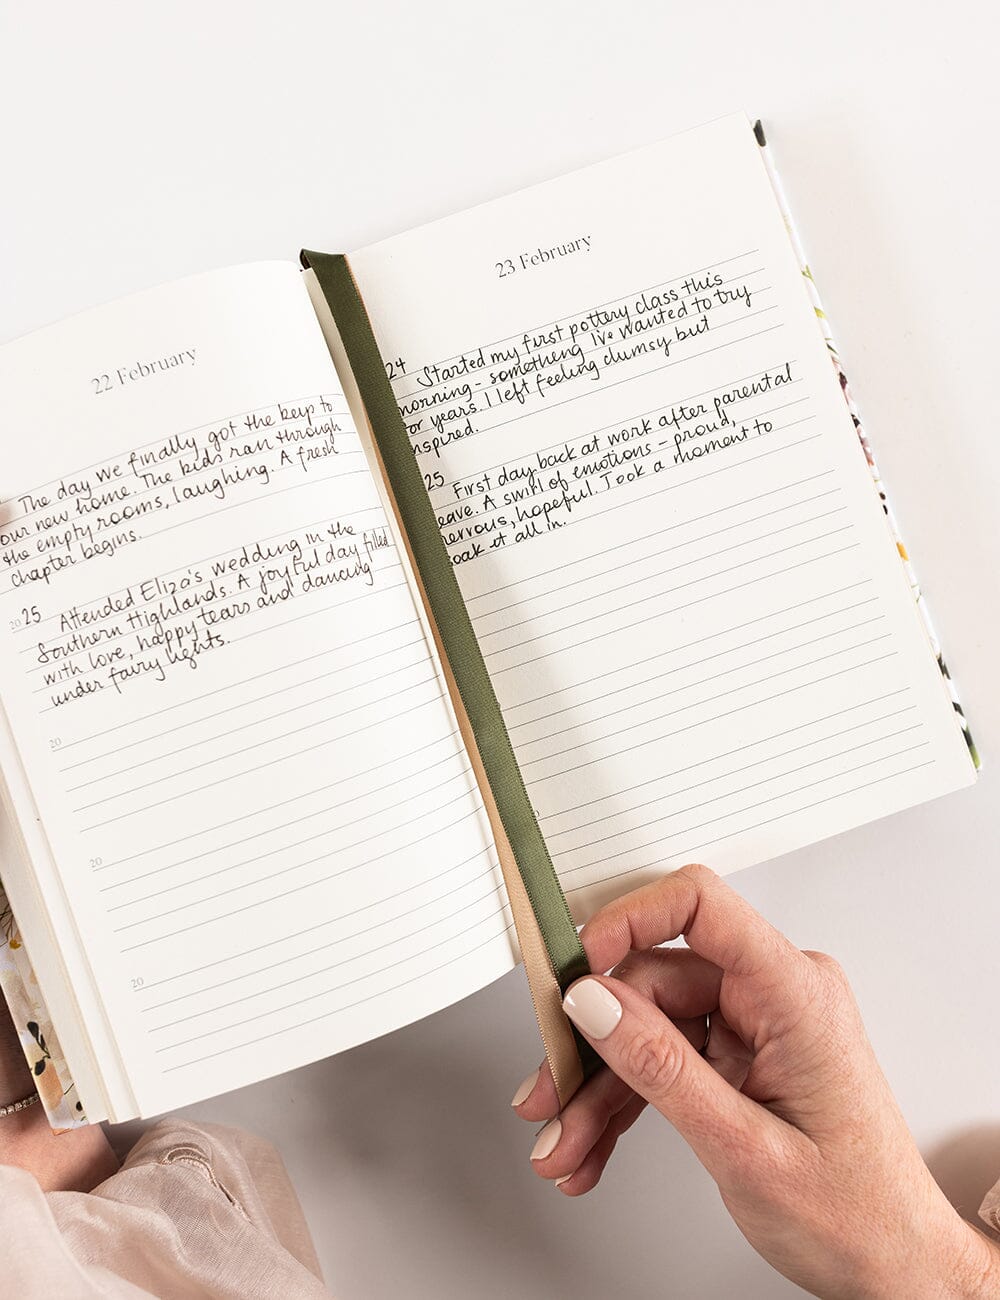 22 February
The day we finally got the keys to
our new home. The kids ran through
the empty rooms, laughing. A fresh
chapter begins.
2025 Attended Eliza's wedding in the
Southern Highlands. A joyful day filled
with love, happy tears and dancing
under fairy lights.
20
20
20
23 February
24 Started my first pottery class this
morning - something I've wanted to try
for years. I left feeling clumsy but
inspired.
25 First day back at work after parental
leave. A swirl of emotions - proud,
nervous, hopeful. Took a moment to
soak it all in.